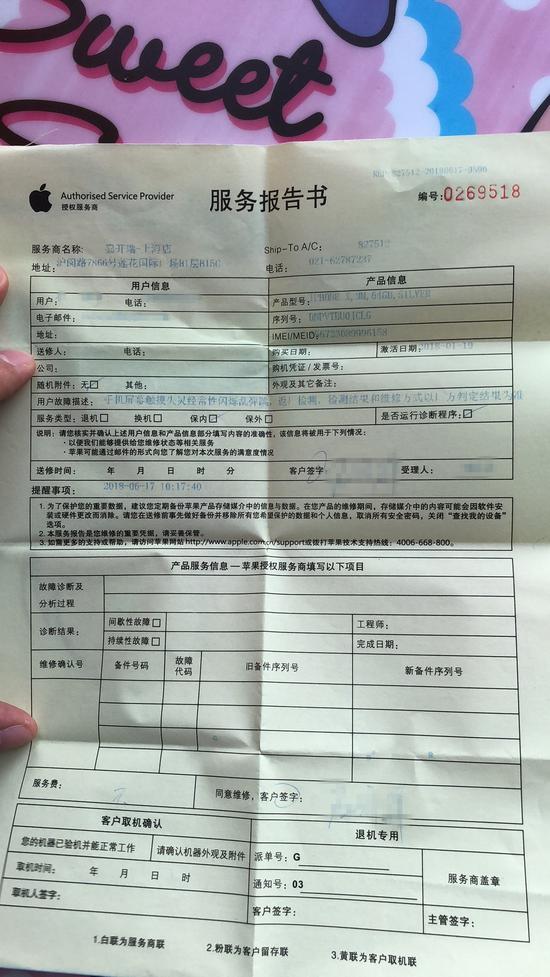 Sweet
Authorised Service Provider
授权服务商
服务报告书
编号:0269518
服务商名称:
Ship-To A/C: 827512
地址: 沪闵路7866号莲花国际广场B1层B15C
电话: 021-62787237
用户信息
产品信息
用户: 电话:
产品型号: IPHONE X,3M,64GB,SILVER
电子邮件:
序列号:
地址:
IMEI/MEID:
送修人: 电话:
购买日期: 激活日期: 2018-01-19
公司:
购机凭证/发票号:
随机附件: 无 其他:
外观及其它备注:
用户故障描述: 手机屏幕触摸失灵经常性闪烁乱弹跳, 返厂检测, 检测结果和维修方式以厂方判定结果为准
服务类型: 退机 换机 保内 保外
是否运行诊断程序:
说明: 请您核实并确认上述用户信息和产品信息部分填写内容的准确性, 该信息将被用于下列情况:
· 以便我们能够提供给您维修状态等相关服务
· 苹果可能通过邮件的形式向您了解您对本次服务的满意度情况
送修时间: 年 月 日 时 分
客户签字: 受理人:
2018-06-17 10:17:40
提醒事项:
1. 为了保护您的重要数据, 建议您定期备份苹果产品存储媒介中的信息与数据。在您产品的维修期间, 存储媒介中的内容可能会因软件安
装或硬件更改而消除。请您在送修前事先做好备份并移除所有您希望保护的数据和个人信息, 取消所有安全密码, 关闭“查找我的设备”
选项。
2. 本服务报告是您维修的重要凭据, 请妥善保管。
3. 如需更多的支持或帮助, 请访问苹果网站http://www.apple.com.cn/support或拨打苹果技术支持热线: 4006-668-800。
产品服务信息 — 苹果授权服务商填写以下项目
故障诊断及
分析过程
诊断结果:
间歇性故障
持续性故障
工程师:
完成日期:
维修确认号
备件号码
故障
代码
旧备件序列号
新备件序列号
服务费:
同意维修, 客户签字:
客户取机确认
退机专用
您的机器已验机并能正常工作
请确认机器外观及附件
派单号: G
取机时间: 年 月 日 时
通知号: 03
服务商盖章
取机人签字:
客户签字:
主管签字:
1.白联为服务商联
2.粉联为客户留存联
3.黄联为客户取机联